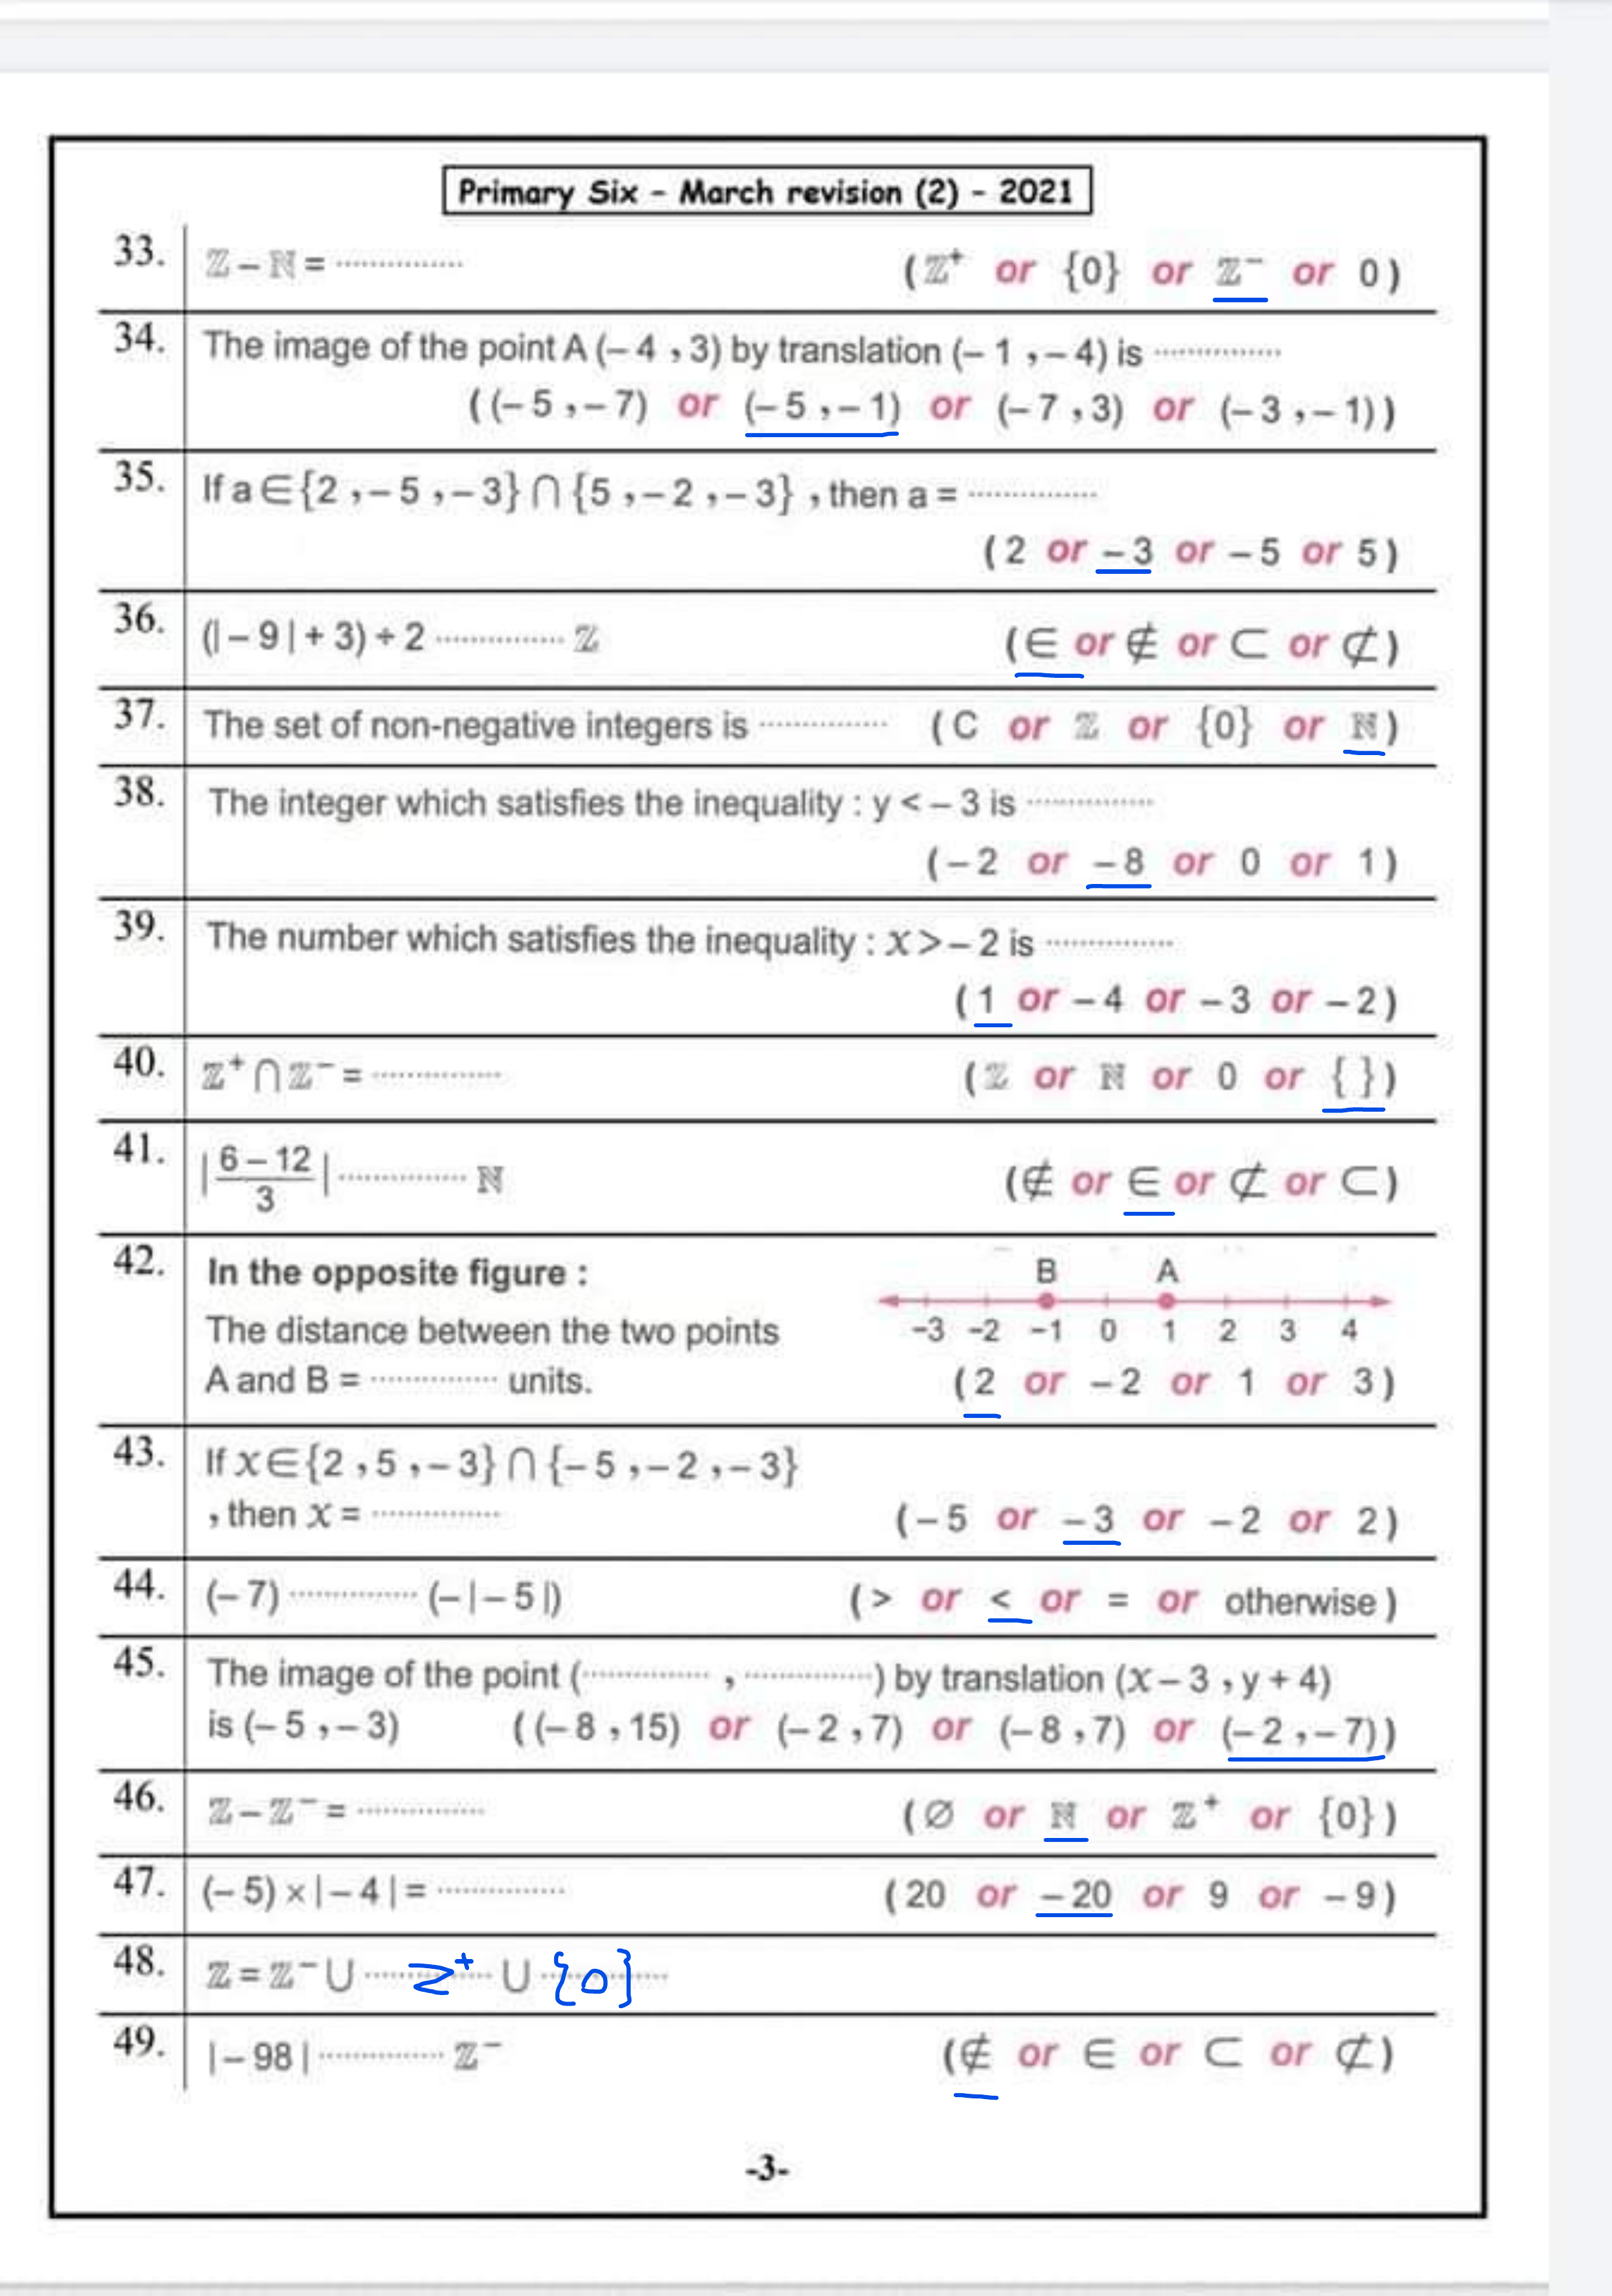 Primary Six - March revision (2) - 2021
33. ℤ – ℕ = ·············· (ℤ⁺ or {0} or ℤ⁻ or 0)
34. The image of the point A (– 4 , 3) by translation (– 1 , – 4) is ··············
((– 5 , – 7) or (– 5 , – 1) or (– 7 , 3) or (– 3 , – 1))
35. If a ∈ {2 , – 5 , – 3} ∩ {5 , – 2 , – 3} , then a = ··············
(2 or – 3 or – 5 or 5)
36. (| – 9 | + 3) ÷ 2 ·············· ℤ (∈ or ∉ or ⊂ or ⊄)
37. The set of non-negative integers is ·············· (C or ℤ or {0} or ℕ)
38. The integer which satisfies the inequality : y < – 3 is ··············
(– 2 or – 8 or 0 or 1)
39. The number which satisfies the inequality : x > – 2 is ··············
(1 or – 4 or – 3 or – 2)
40. ℤ⁺ ∩ ℤ⁻ = ·············· (ℤ or ℕ or 0 or { })
41. | (6 – 12)/3 | ·············· ℕ (∉ or ∈ or ⊄ or ⊂)
42. In the opposite figure : B A
The distance between the two points -3 -2 -1 0 1 2 3 4
A and B = ·············· units. (2 or – 2 or 1 or 3)
43. If x ∈ {2 , 5 , – 3} ∩ {– 5 , – 2 , – 3}
, then x = ·············· (– 5 or – 3 or – 2 or 2)
44. (– 7) ·············· (– | – 5 |) (> or < or = or otherwise)
45. The image of the point (·············· , ··············) by translation (x – 3 , y + 4)
is (– 5 , – 3) ((– 8 , 15) or (– 2 , 7) or (– 8 , 7) or (– 2 , – 7))
46. ℤ – ℤ⁻ = ·············· (∅ or ℕ or ℤ⁺ or {0})
47. (– 5) × | – 4 | = ·············· (20 or – 20 or 9 or – 9)
48. ℤ = ℤ⁻ ∪ Z⁺ ∪ {0}
49. | – 98 | ·············· ℤ⁻ (∉ or ∈ or ⊂ or ⊄)
-3-